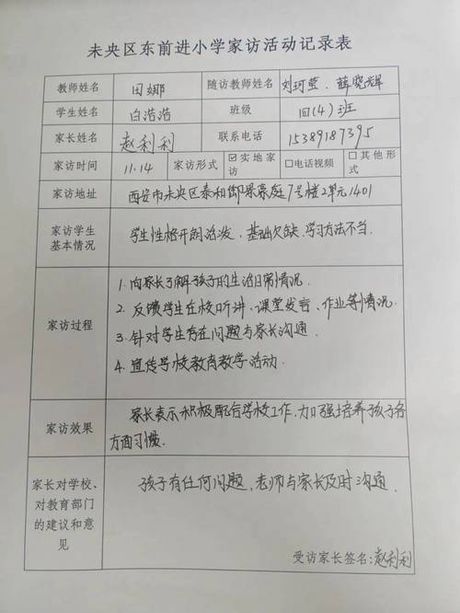 未央区东前进小学家访活动记录表
教师姓名 田娜 随访教师姓名 刘珂莹、薛晓辉
学生姓名 白浩浩 班级 四(4)班
家长姓名 赵利利 联系电话 15389187395
家访时间 11.14 家访形式 ☑实地家访 □电话视频 □其他形式
家访地址 西安市未央区泰和御景家庭7号楼2单元1401
家访学生基本情况 学生性格开朗活泼,基础欠缺.学习方法不当.
家访过程
1.向家长了解孩子的生活日常情况.
2.反馈学生在校听讲、课堂发言、作业等情况.
3.针对学生存在问题与家长沟通.
4.宣传学校教育教学活动.
家访效果 家长表示积极配合学校工作,加强培养孩子各
方面习惯.
家长对学校、对教育部门的建议和意见 孩子有任何问题,老师与家长及时沟通.
受访家长签名:赵利利